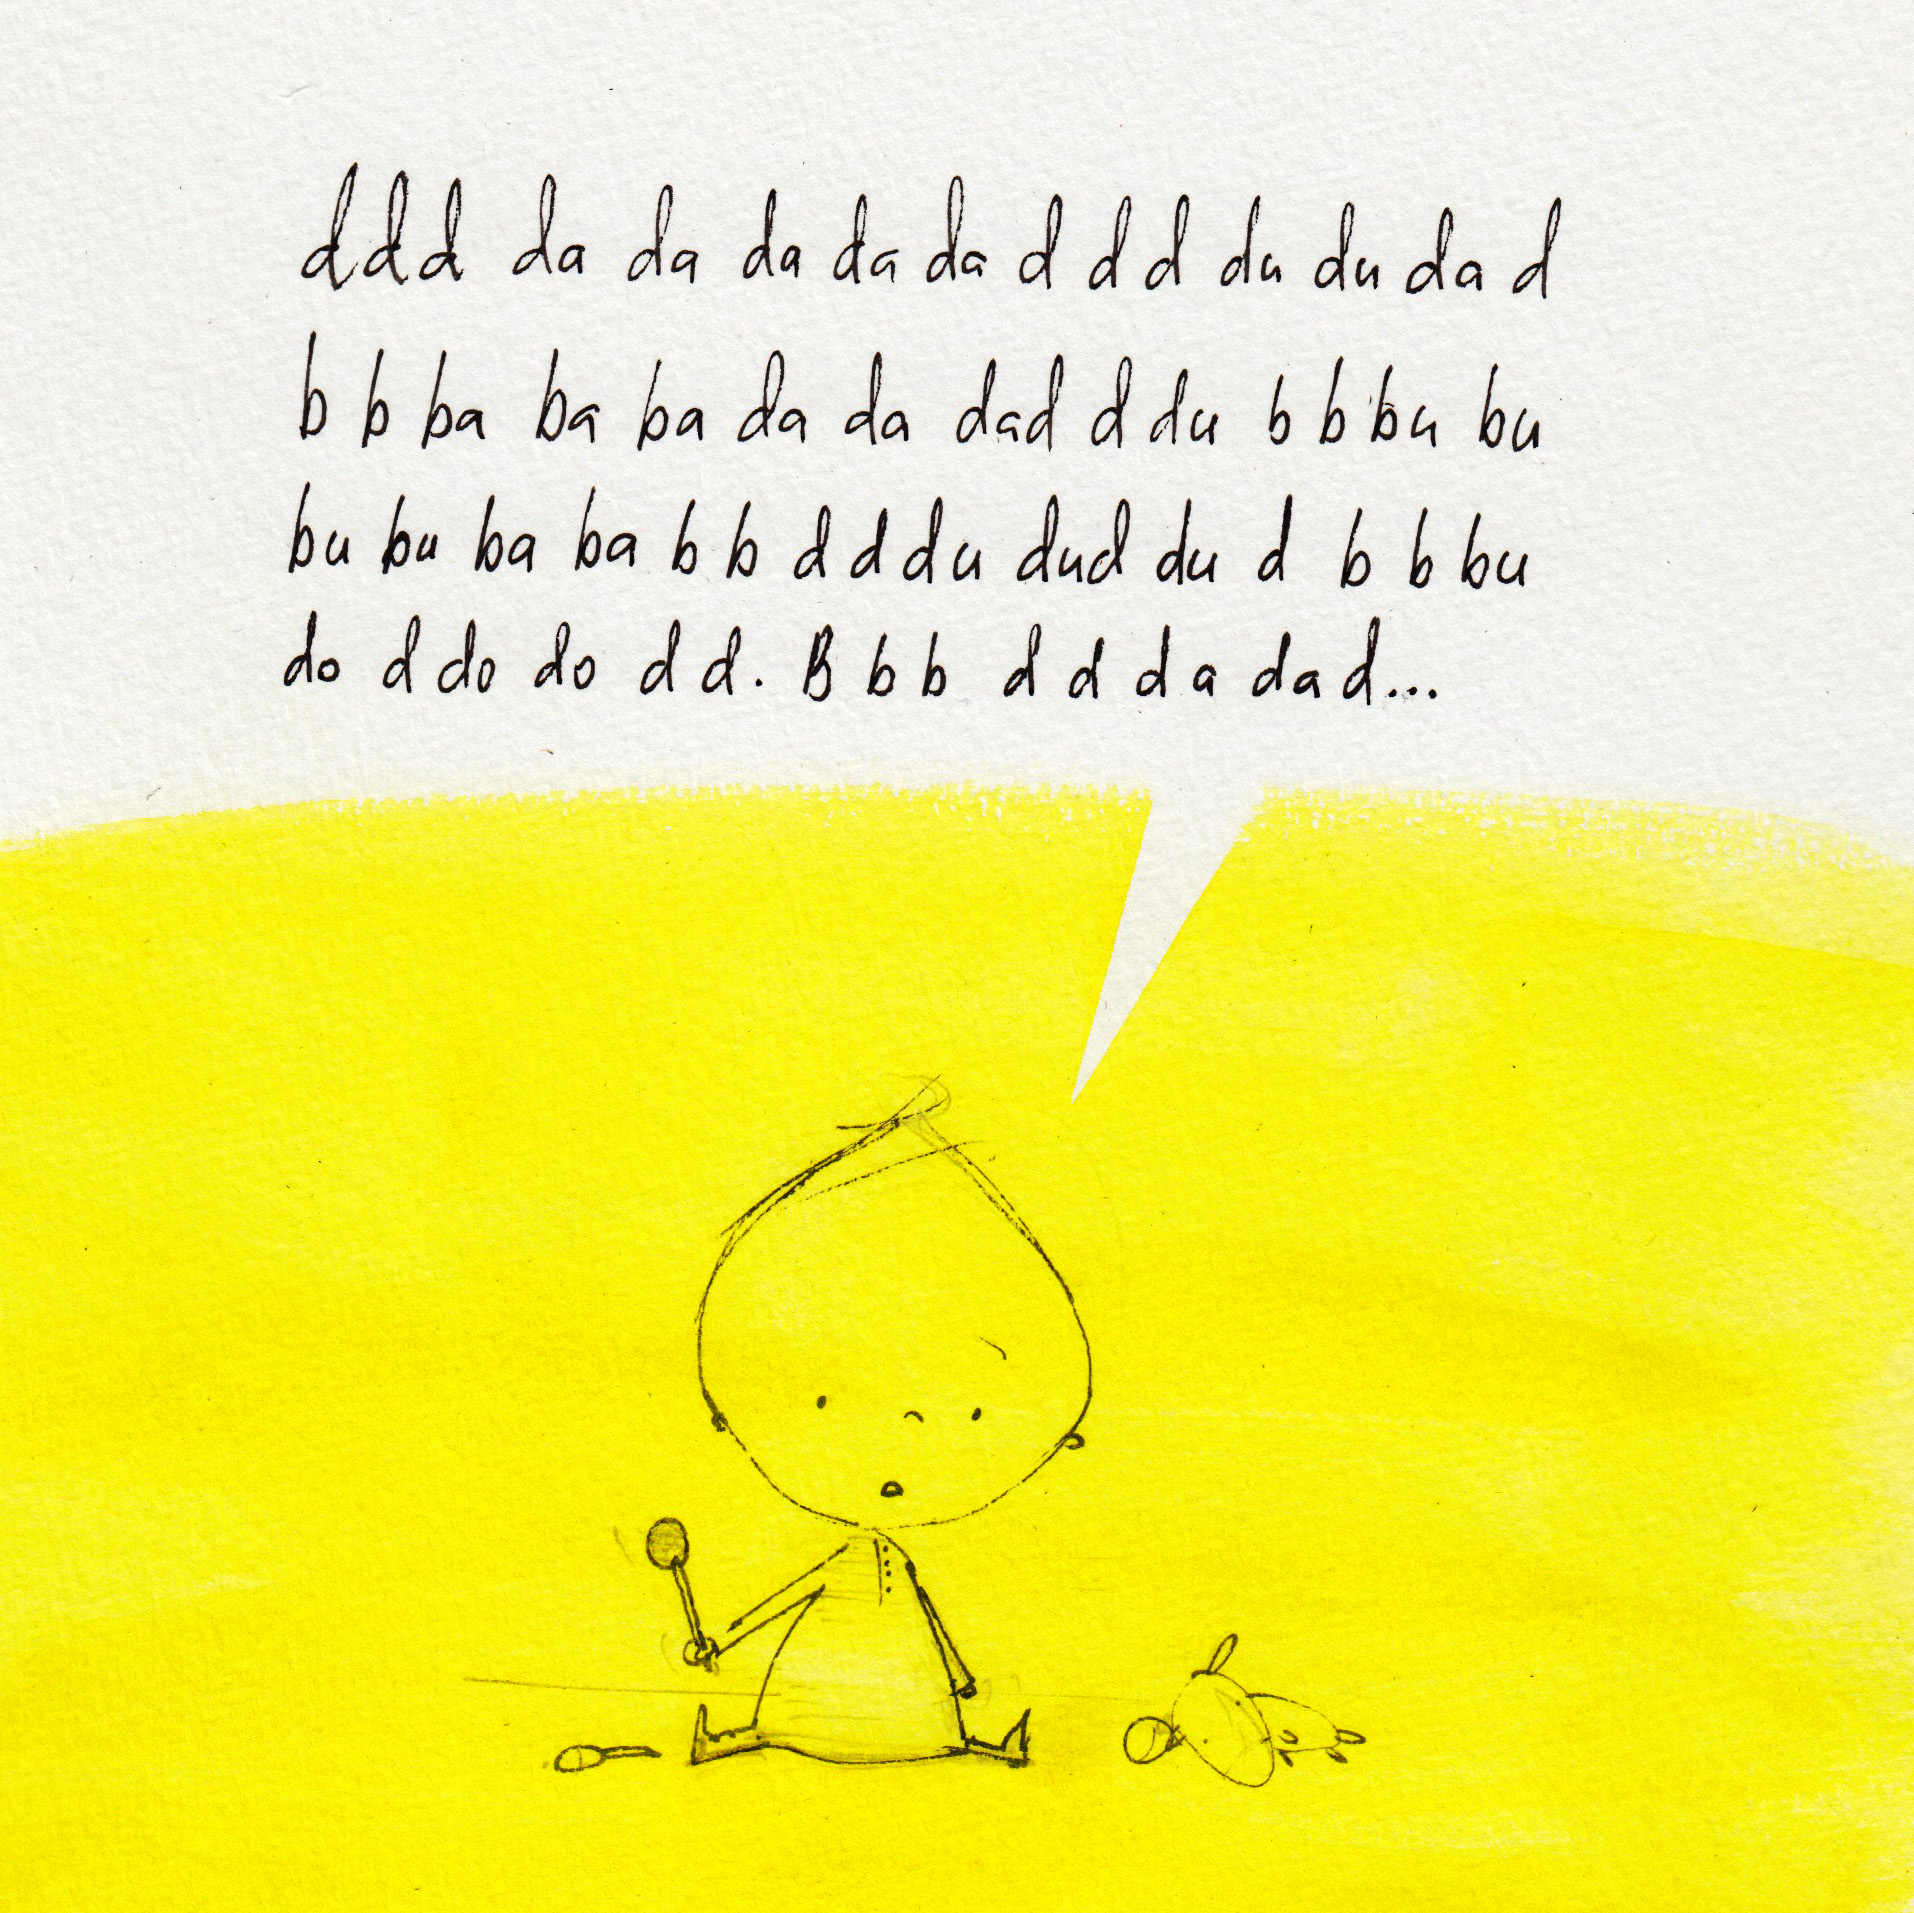 ddd da da da da da d d d du du da d
b b ba ba ba da da dad d du b b bu bu
bu bu ba ba b b d d du dud du d b b bu
do d do do d d. B b b d d d a dad...